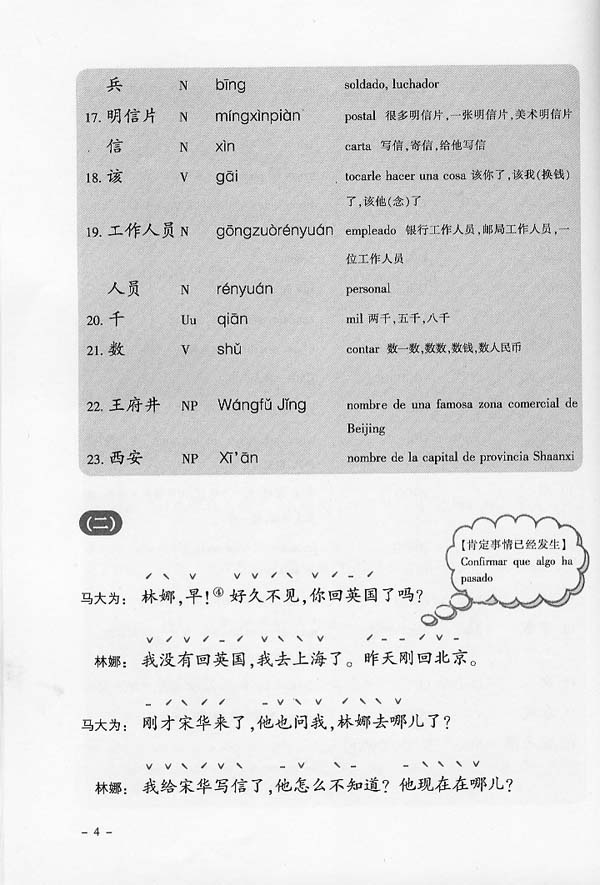 兵 N bīng soldado, luchador
17. 明信片 N míngxìnpiàn postal 很多明信片,一张明信片,美术明信片
信 N xìn carta 写信,寄信,给他写信
18. 该 V gāi tocarle hacer una cosa 该你了,该我(换钱)
了,该他(念)了
19. 工作人员 N gōngzuòrényuán empleado 银行工作人员,邮局工作人员,一
位工作人员
人员 N rényuán personal
20. 千 Uu qiān mil 两千,五千,八千
21. 数 V shǔ contar 数一数,数数,数钱,数人民币
22. 王府井 NP Wángfǔ Jǐng nombre de una famosa zona comercial de
Beijing
23. 西安 NP Xī'ān nombre de la capital de provincia Shaanxi
(二)
【肯定事情已经发生】
Confirmar que algo ha
pasado
马大为: 林娜,早!④ 好久不见,你回英国了吗?
林娜: 我没有回英国,我去上海了。昨天刚回北京。
马大为: 刚才宋华来了,他也问我,林娜去哪儿了?
林娜: 我给宋华写信了,他怎么不知道? 他现在在哪儿?
- 4 -